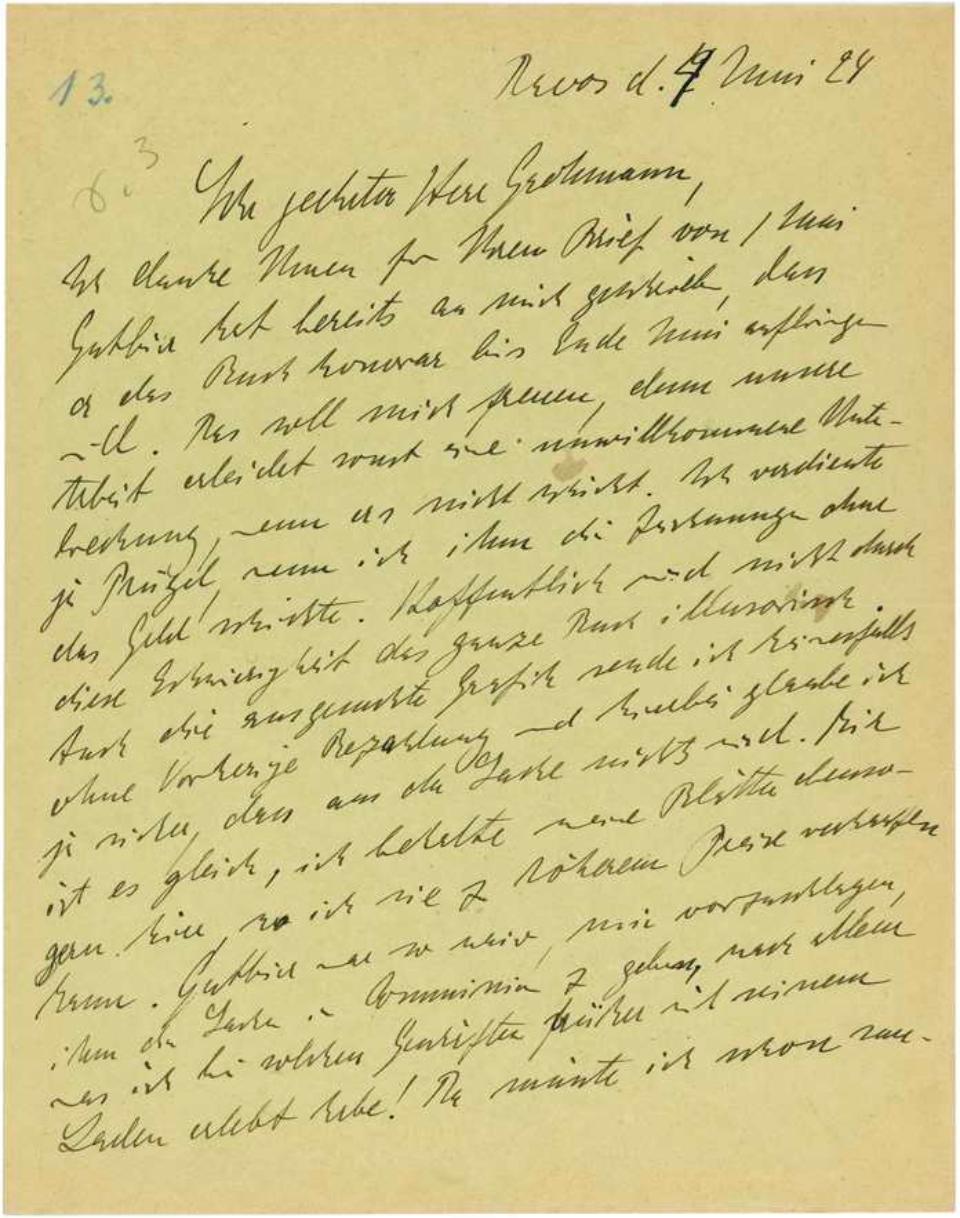 13.
Davos d. 7 Juni 24
8.3
Sehr geehrter Herr Grohmann,
Ich danke Ihnen für Ihren Brief von 1 Juni
Gutbier hat bereits an mich geschrieben, dass
er das Buch honorar bis Ende Juni aufbringen
will. Das soll mich freuen, denn unsere
Arbeit erleidet sonst eine unwillkommene Unter-
brechung, wenn er's nicht schickt. Ich verdiente
ja Prügel, wenn ich ihm die Zeichnungen ohne
das Geld schickte. Hoffentlich wird nicht durch
diese Schwierigkeit das ganze Buch illusorisch.
Auch die ausgesuchte Grafik sende ich keinesfalls
ohne Vorherige Bezahlung und hierbei glaube ich
ja sicher, dass aus der Sache nichts wird. Mir
ist es gleich, ich behalte meine Blätter ebenso-
gern hier, wo ich sie z höherem Preise verkaufen
kann. Gutbier war so naiv, mir vorzuschlagen,
ihm die Sachen in Commission z geben, nach allem
was ich bei solchen Geschäften früher mit seinem
Laden erlebt habe! Da müsste ich schon